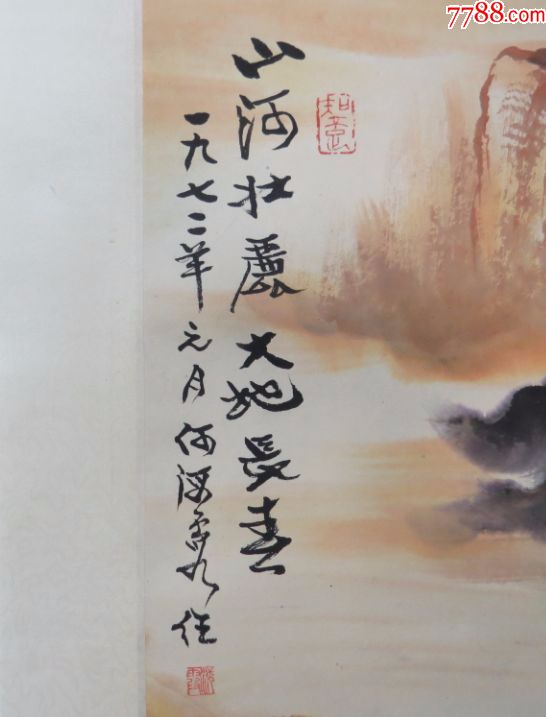 7788.com
山河壮麗大地長春
知意
一九七二年元月何海霞作